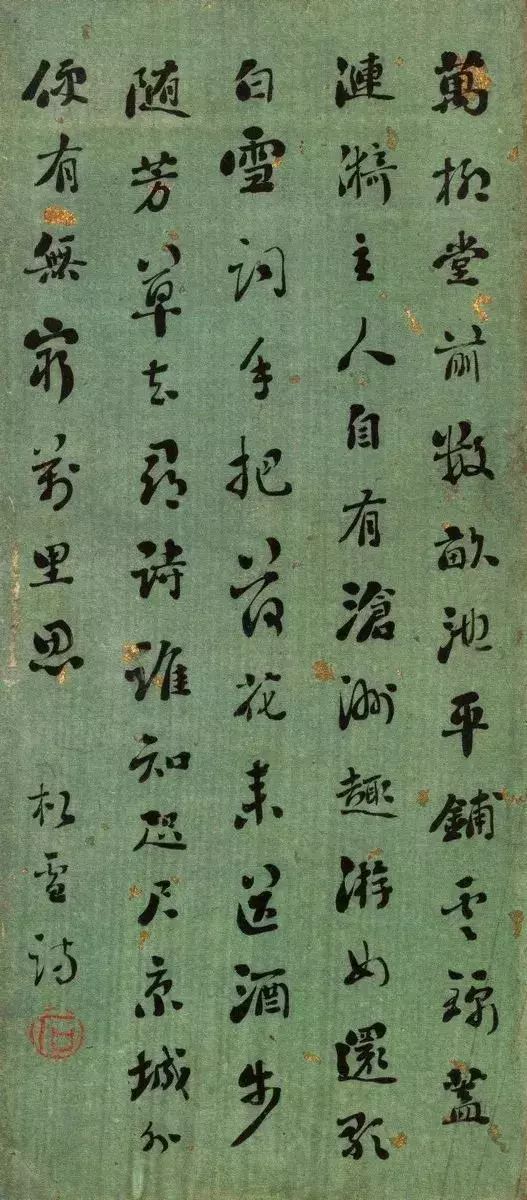 萬柳堂前數畝池平鋪雲錦蓋
漣漪主人自有滄洲趣游女還歌
白雪詞手把荷花来送酒步
随芳草去尋詩誰知咫尺京城外
便有無窮萬里思
松雪詩